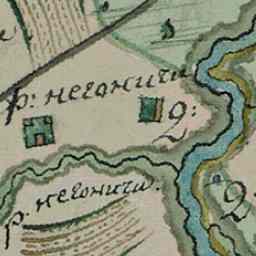 р: негоничи
2:
р: негоничи.
2: